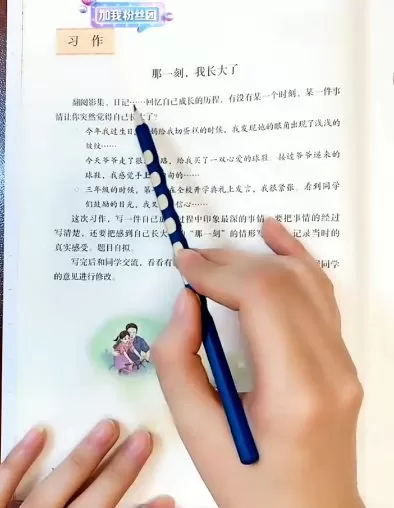 加我粉丝团
习 作
那一刻，我长大了
翻阅影集、日记……回忆自己成长的历程，有没有某一个时刻、某一件事
情让你突然觉得自己长大了？
今年我过生日，妈给我切蛋糕的时候，我发现她的眼角出现了浅浅的
皱纹……
今天爷爷走了很路，给我买了一双心爱的球鞋。接过爷爷递来的
球鞋，我感觉手上的……
三年级的时候，第在全校开学典礼上发言，我很紧张。看到同学
们鼓励的目光，我又信心……
这次习作，写一件自己成过程中印象最深的事情。要把事情的经过
写清楚，还要把感到自己长大的“那一刻”的情形写记录当时的
真实感受。题目自拟。
写完后和同学交流，看看有同学
的意见进行修改。